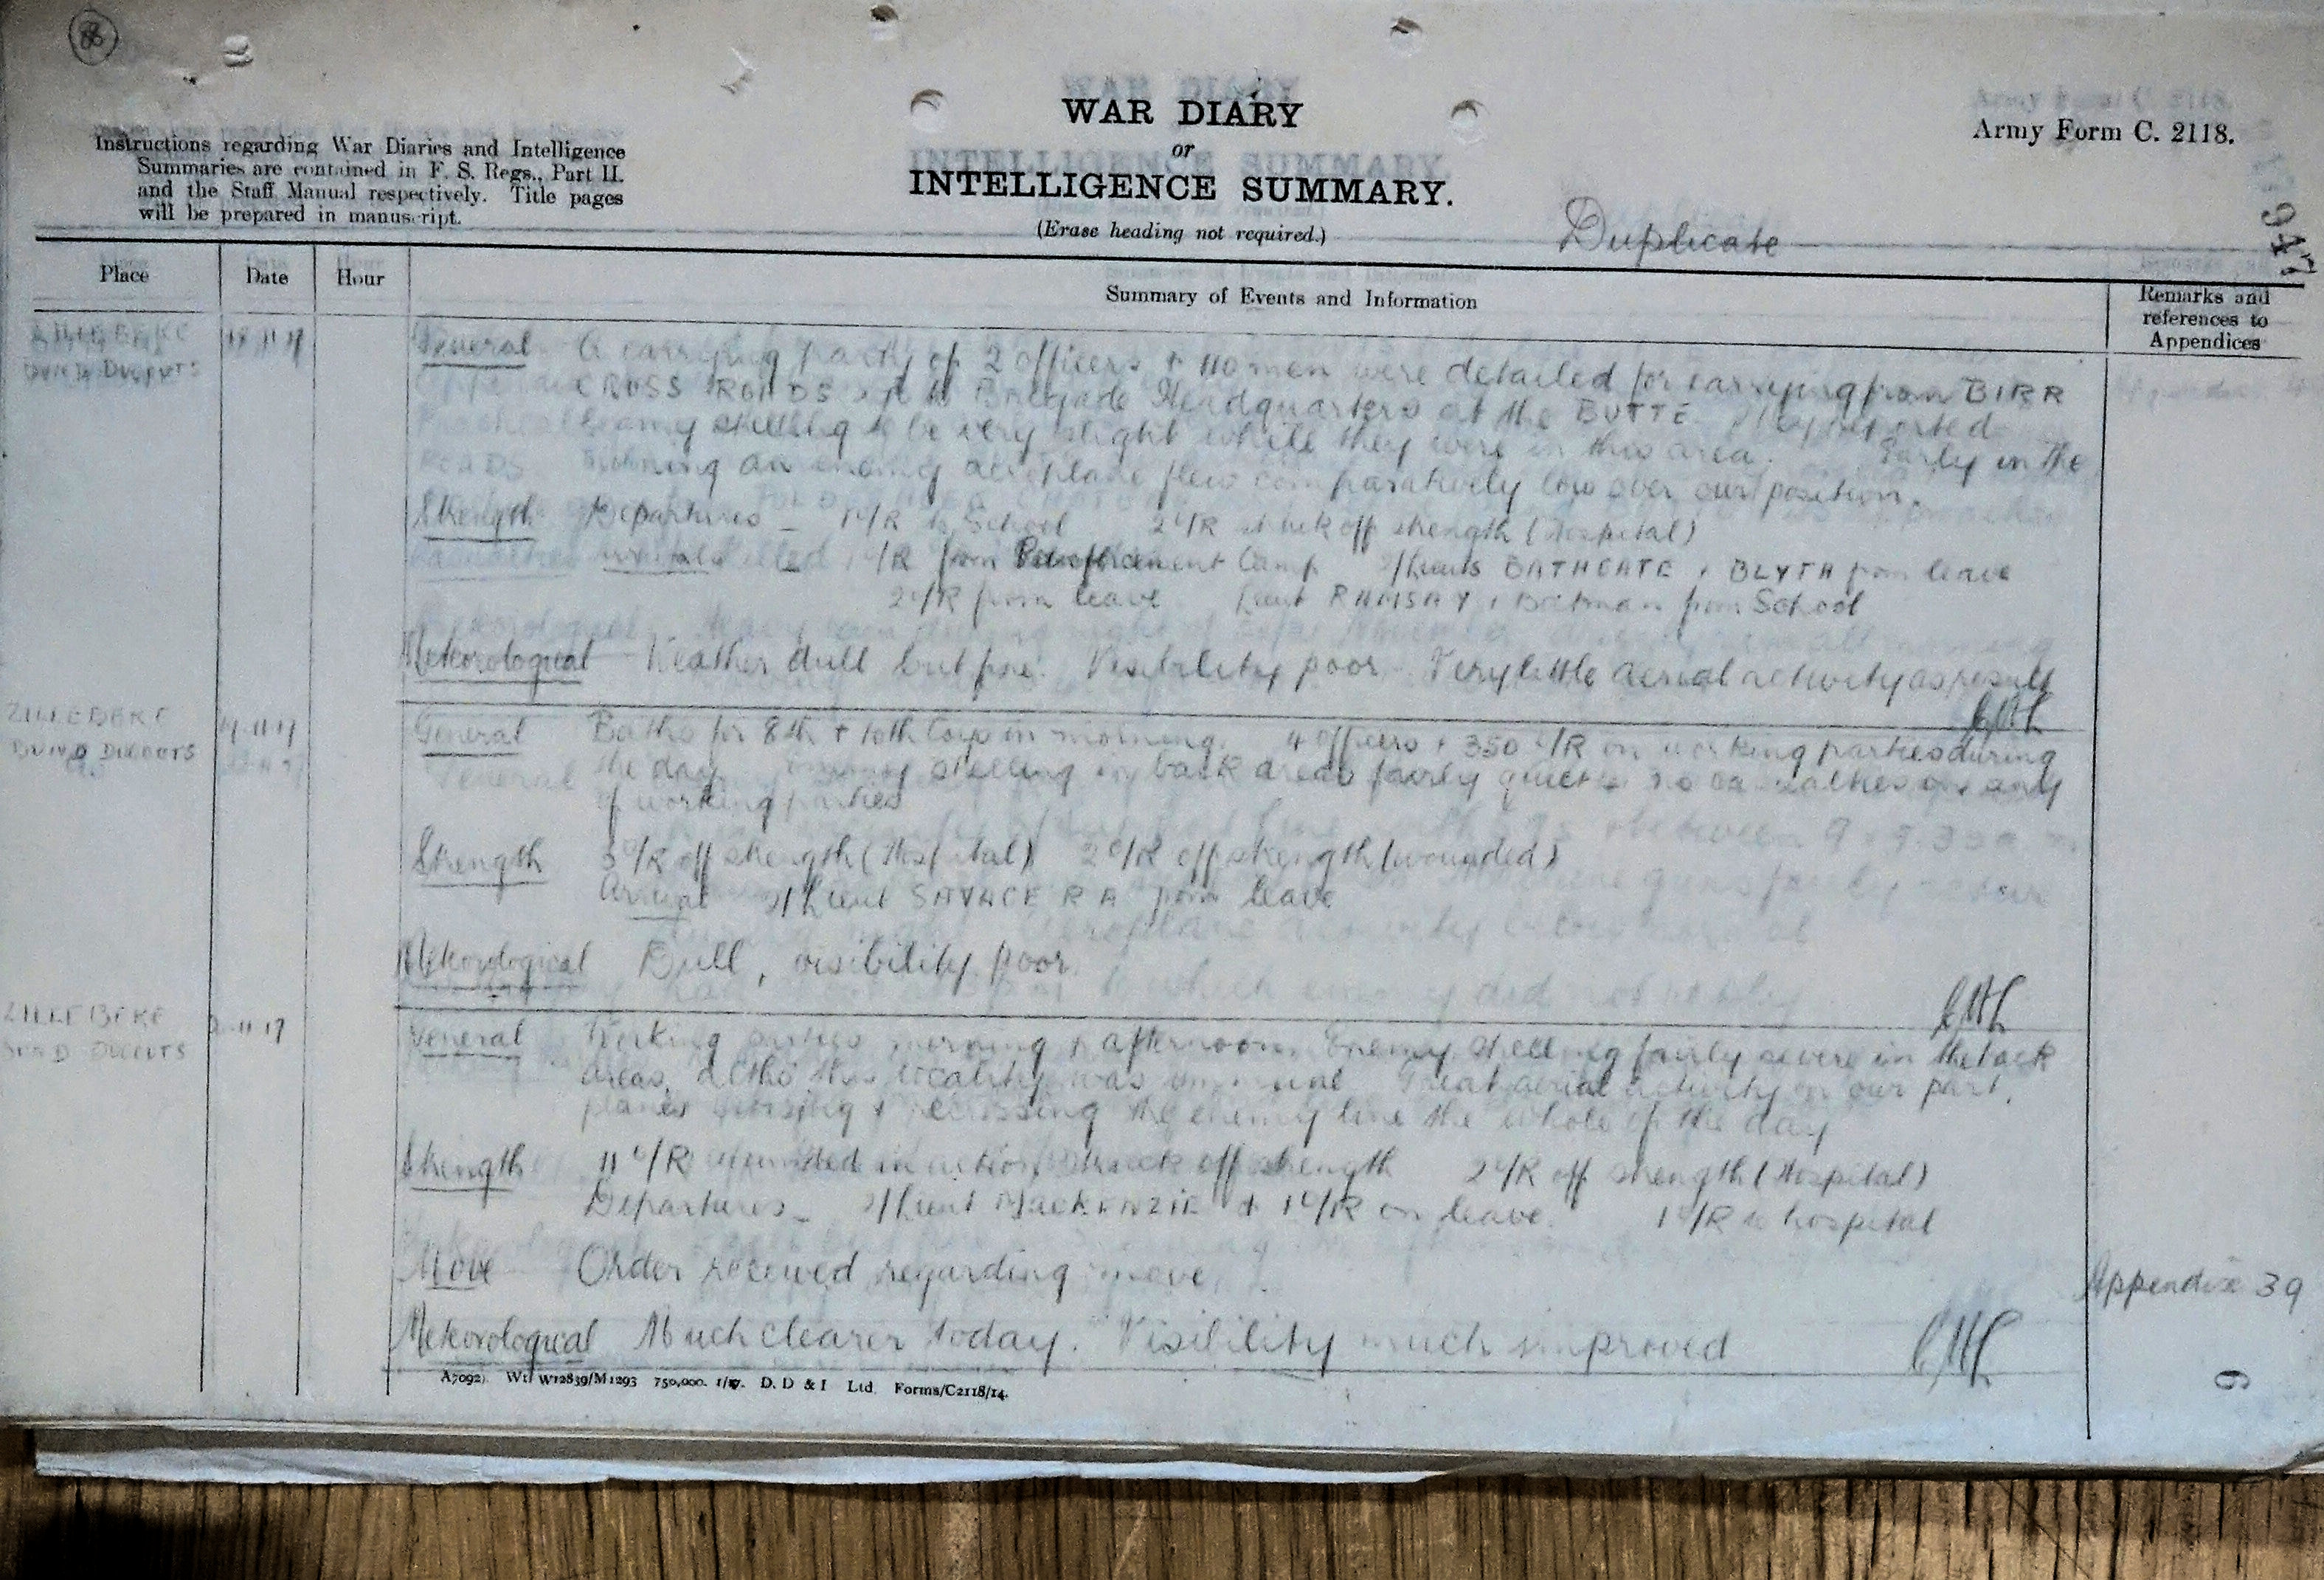 88
WAR DIARY
or
INTELLIGENCE SUMMARY.
(Erase heading not required.)
Instructions regarding War Diaries and Intelligence
Summaries are contained in F. S. Regs., Part II.
and the Staff Manual respectively. Title pages
will be prepared in manuscript.
Army Form C. 2118.
Duplicate
947
Place Date Hour Summary of Events and Information Remarks and references to Appendices
ZILLEBEKE
BUND DUGOUTS
General A carrying party of 2 officers + 110 men were detailed for carrying from BIRR
CROSS ROADS to Brigade Headquarters at the BUTTE. They reported
enemy shelling to be very slight while they were in this area. Early in the
morning an enemy aeroplane flew comparatively low over our position.
Strength Departures - 1 O/R to School 2 O/R struck off strength (Hospital)
Arrivals - 1 O/R from Reinforcement Camp 2/Lieuts BATHGATE + BLYTH from leave
2 O/R from leave Lieut RAMSAY + Batman from School
Meteorological Weather dull but fine. Visibility poor. Very little aerial activity as result
ZILLEBEKE
BUND DUGOUTS
General Baths for 8th + 10th Coys in morning. 4 officers + 350 O/R on working parties during
the day. Enemy shelling in back areas fairly quiet + no casualties on any
of working parties
Strength 3 O/R off strength (Hospital) 2 O/R off strength (wounded)
Arrival 2/Lieut SAVAGE R A from leave
Meteorological Dull, visibility poor
ZILLEBEKE
BUND DUGOUTS
General Working parties morning + afternoon. Enemy shelling fairly severe in the back
areas, altho' this locality was Great aerial activity on our part,
planes crossing + recrossing the enemy line the whole of the day
Strength 11 O/R wounded in action struck off strength 2 O/R off strength (Hospital)
Departures - 2/Lieut MacKENZIE + 1 O/R on leave. 1 O/R to hospital
Move Order received regarding move
Appendix 39
Meteorological Much clearer today. Visibility much improved
A7092). Wt. W12839/M1293 750,000. 1/17. D. D & I Ltd. Forms/C2118/14.
6